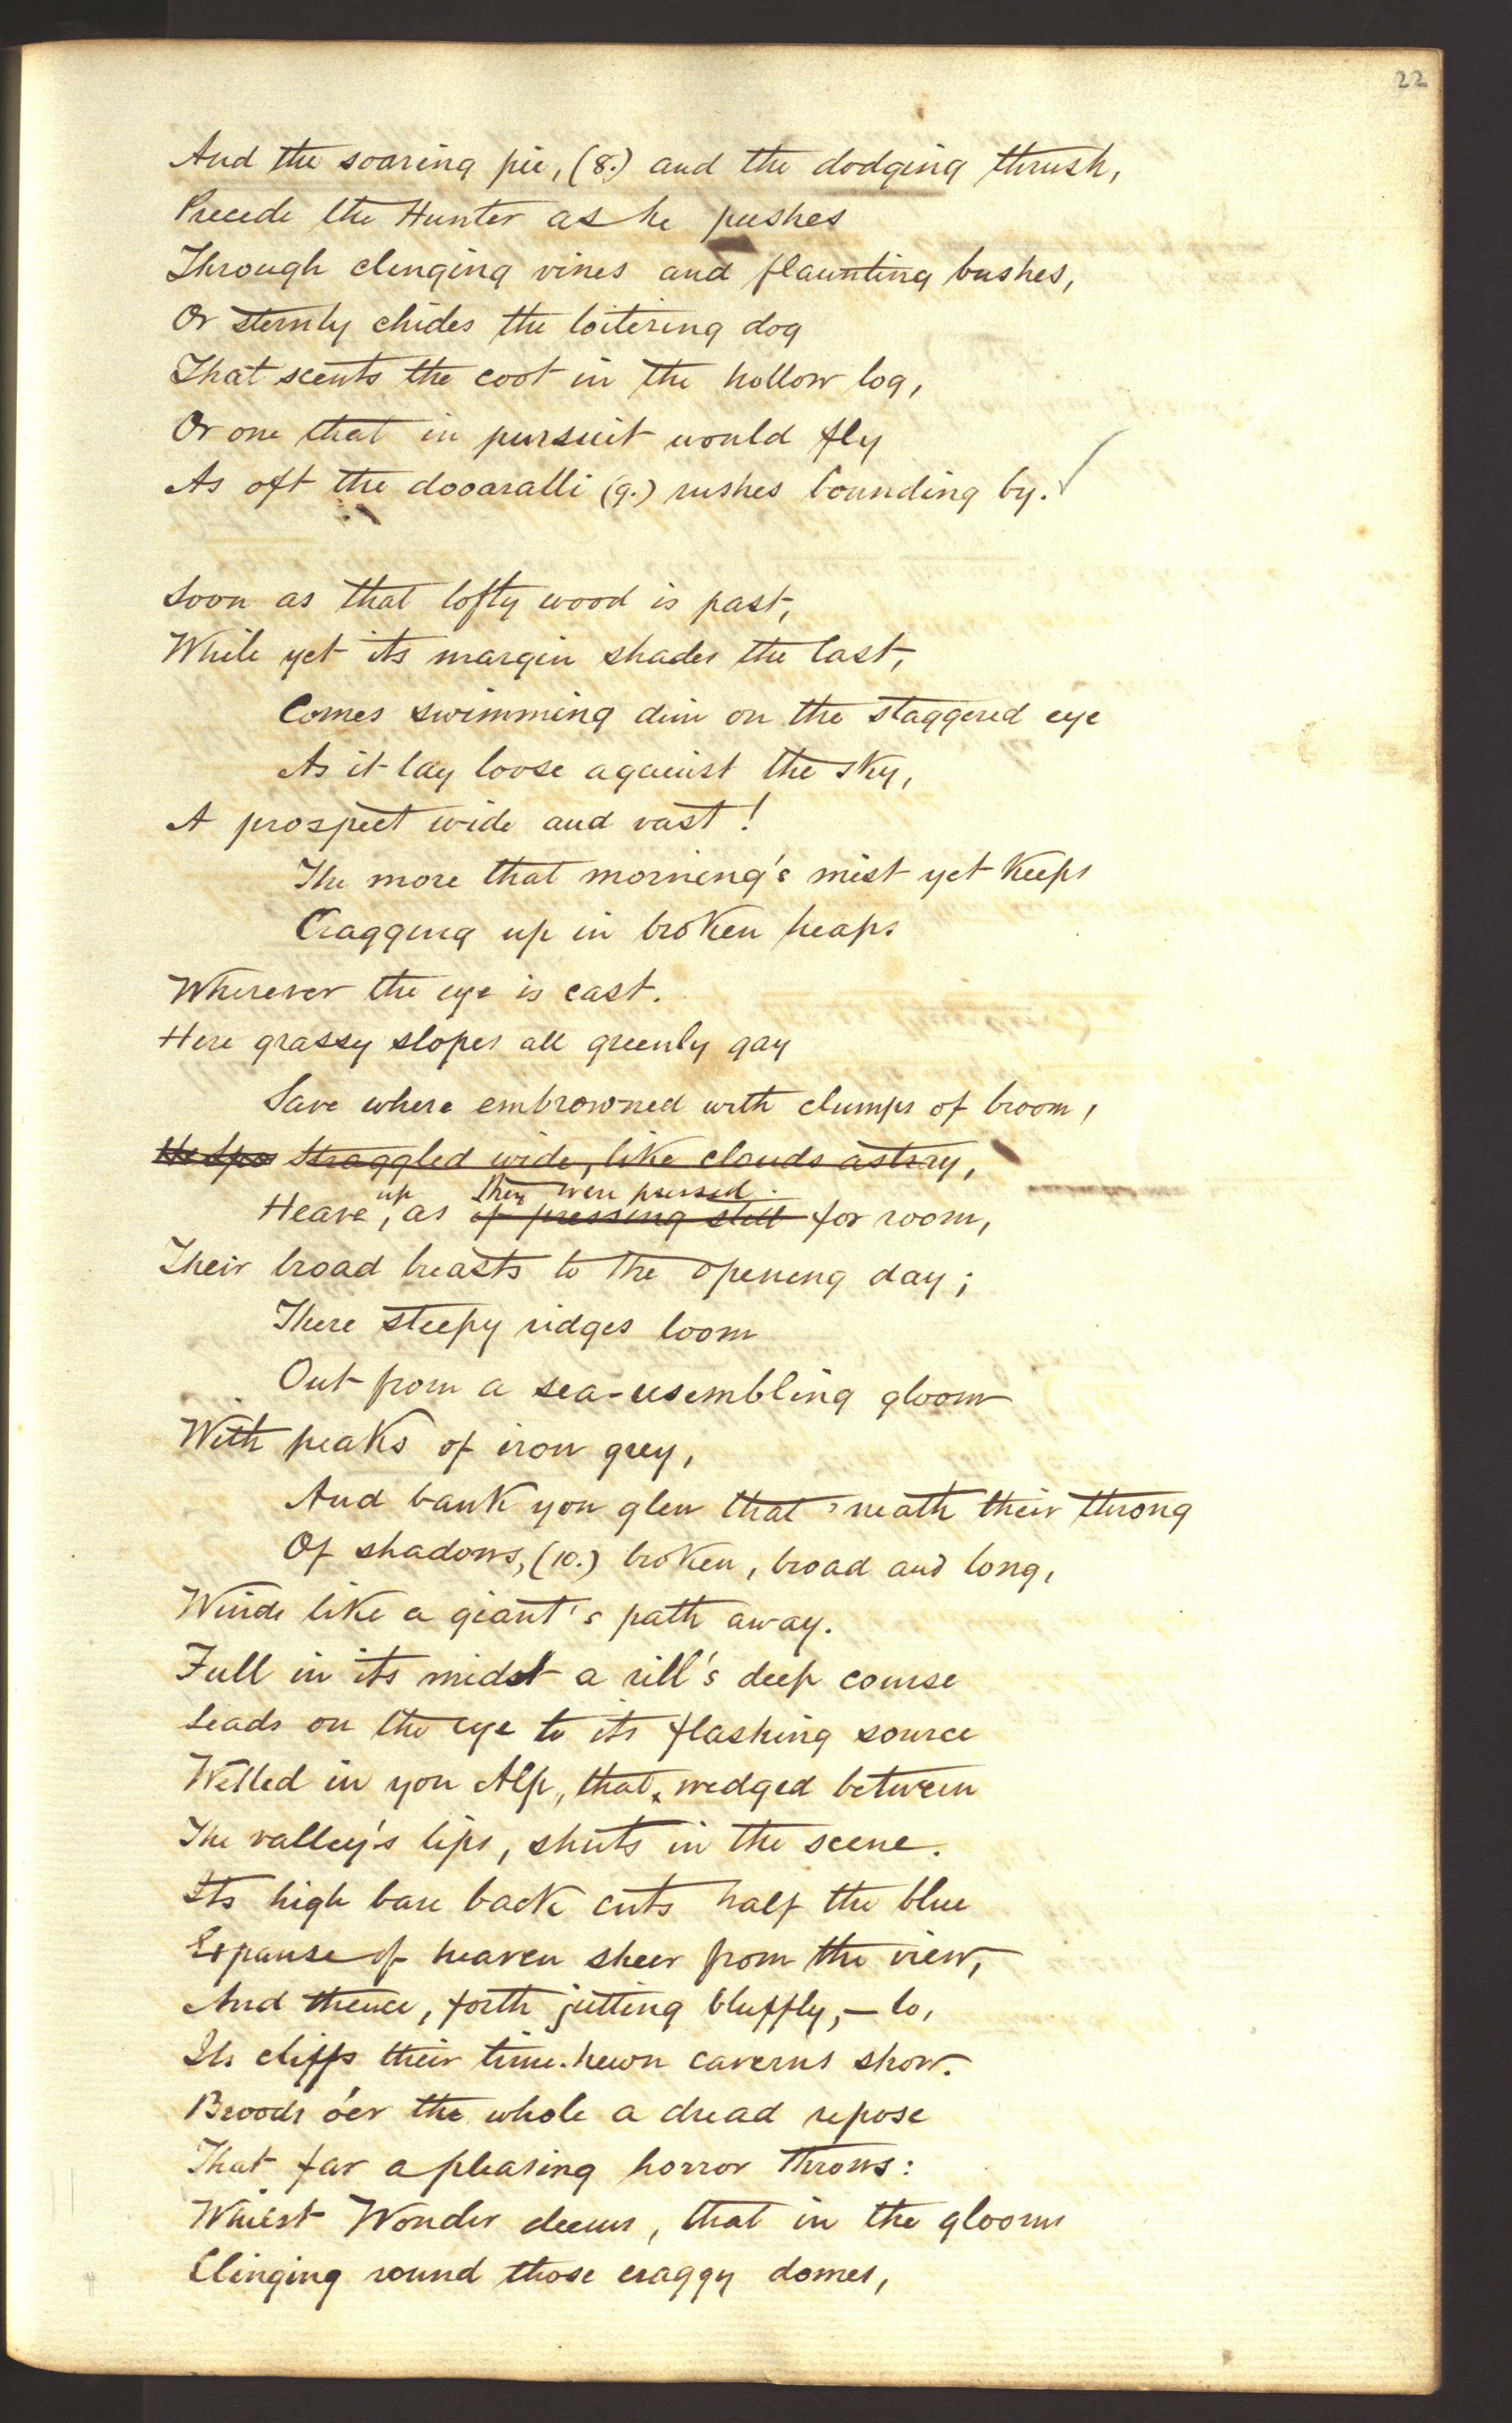 22
And the soaring pie, (8.) and the dodging thrush,
Precede the Hunter as he pushes
Through clinging vines and flaunting bushes,
Or sternly chides the loitering dog
That scents the coot in the hollow log,
Or one that in pursuit would fly
As oft the dooaralli (9.) rushes bounding by.
Soon as that lofty wood is past,
While yet its margin shades the last,
Comes swimming dim on the staggered eye
As it lay loose against the sky,
A prospect wide and vast!
The more that morning's mist yet keeps
Cragging up in broken heaps
Wherever the eye is cast.
Here grassy slopes all greenly gay
Save where embrowned with clumps of broom,
Straggled wide, like clouds astray,
up they were pressed
Heave, as if pressing still for room,
Their broad breasts to the opening day;
There steepy ridges loom
Out from a sea-resembling gloom
With peaks of iron grey,
And bank yon glen that 'neath their throng
Of shadows, (10.) broken, broad and long,
Winds like a giant's path away.
Full in its midst a rill's deep course
Leads on the eye to its flashing source
Welled in yon Alp, that, wedged between
The valley's lips, shuts in the scene.
Its high bare back cuts half the blue
Expanse of heaven sheer from the view,
And thence, forth jutting bluffly, — lo,
Its cliffs their time-hewn caverns show.
Broods o'er the whole a dread repose
That far a pleasing horror throws:
Whilst Wonder deems, that in the glooms
Clinging round those craggy domes,